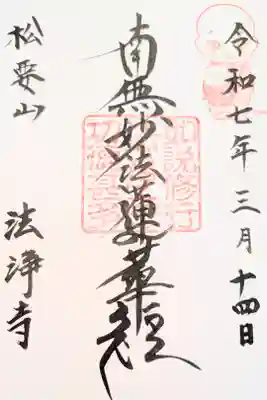 令和七年三月十四日
南無妙法蓮華経
松要山
法浄寺